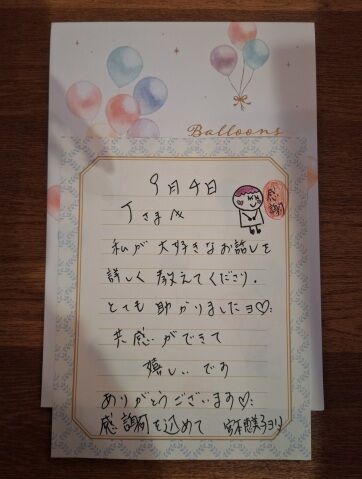 Balloons
9月4日
Jさまへ
感謝
私が大好きなお話しを
詳しく教えてくださり、
とても助かりましたヨ♡
共感ができて
嬉しいです
ありがとうございます♡
感謝を込めて 恵美子ヨリ